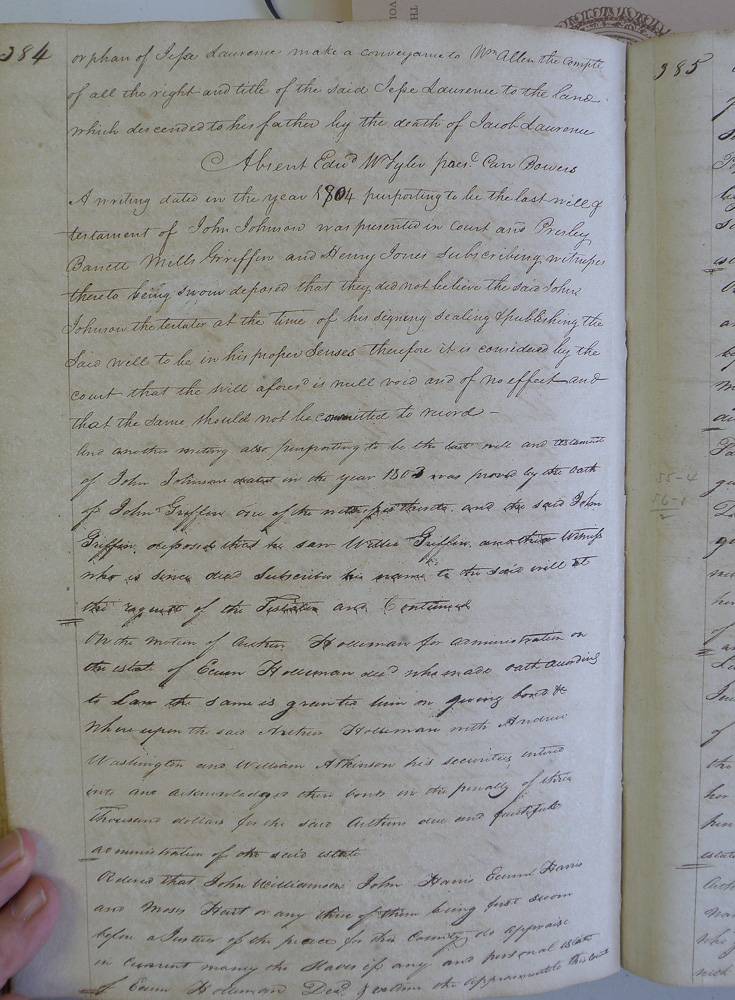 384
orphan of Jesse Laurence make a conveyance to Wm Allen the Complt
of all the right and title of the said Jesse Laurence to the land
which descended to his father by the death of Jacob Laurence
Absent Edwd W Tyler Carr Bowers
A writing dated in the year 1804 purporting to be the last will &
testament of John Johnson was presented in Court and Presley
Barrett Mills Griffin and Henry Jones subscribing witnesses
thereto being sworn deposed that they did not believe the said John
Johnson the testator at the time of his signing sealing & publishing the
said will to be in his proper senses therefore it is considered by the
court that the will aforesd is null void and of no effect and
that the same should not be committed to record -
And another writing also purporting to be the last will and testament
of John Johnson dated in the year 1803 was proved by the oath
of John Griffin one of the witnesses thereto and the said John
Griffin deposed that he saw Willie Griffin another witness
who is since dead subscribe his name to the said will at
the request of the Testator and Continued
On the motion of Arthur Holleman for administration on
the estate of Edwin Holleman decd who made oath according
to Law the same is granted him on giving bond &c
Where upon the said Arthur Holleman with Andrew
Washington and William Atkinson his securities entered
into and acknowledged their bond in the penalty of three
Thousand dollars for the said Arthurs due and faithful
administration of the said estate
Ordered that John Williamson John Harris Edwin Harris
and Moses Hart or any three of them being first sworn
before a Justice of the peace for this County do appraise
in Current money the Slaves if any and personal estate
of Edwin Holleman Decd & return the appraisement to this Court
385
55-4
56-1